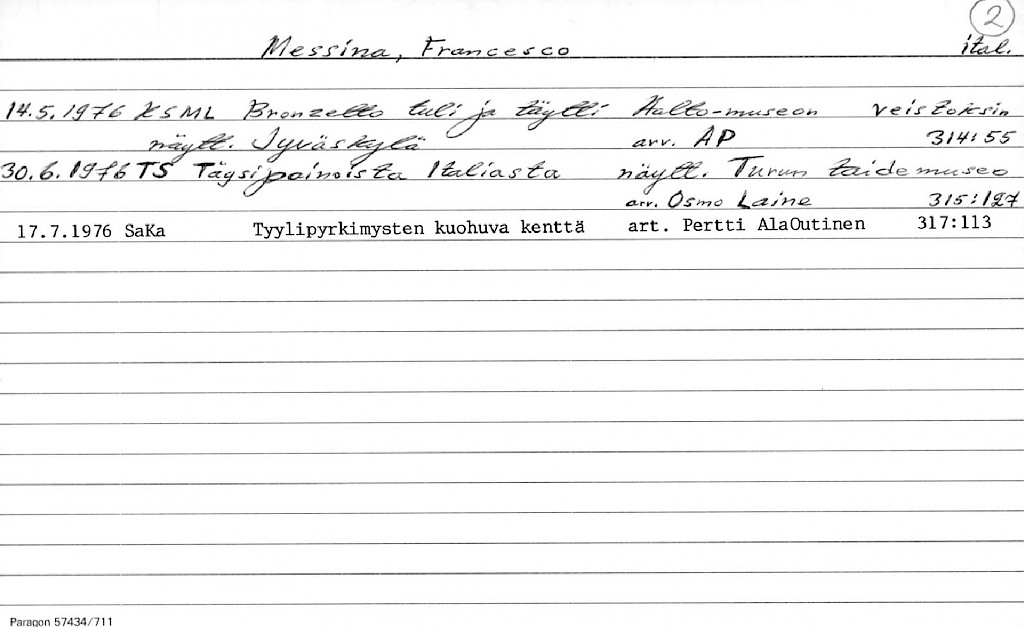 2
Messina, Francesco ital.
14.5.1976 KSML Bronzetto tuli ja täytti Aalto-museon veistoksin
näytt. Jyväskylä arv. AP 314:55
30.6.1976 TS Täysipainoista Italiasta näytt. Turun taidemuseo
arv. Osmo Laine 315:127
17.7.1976 SaKa Tyylipyrkimysten kuohuva kenttä art. Pertti AlaOutinen 317:113
Paragon 57434/711